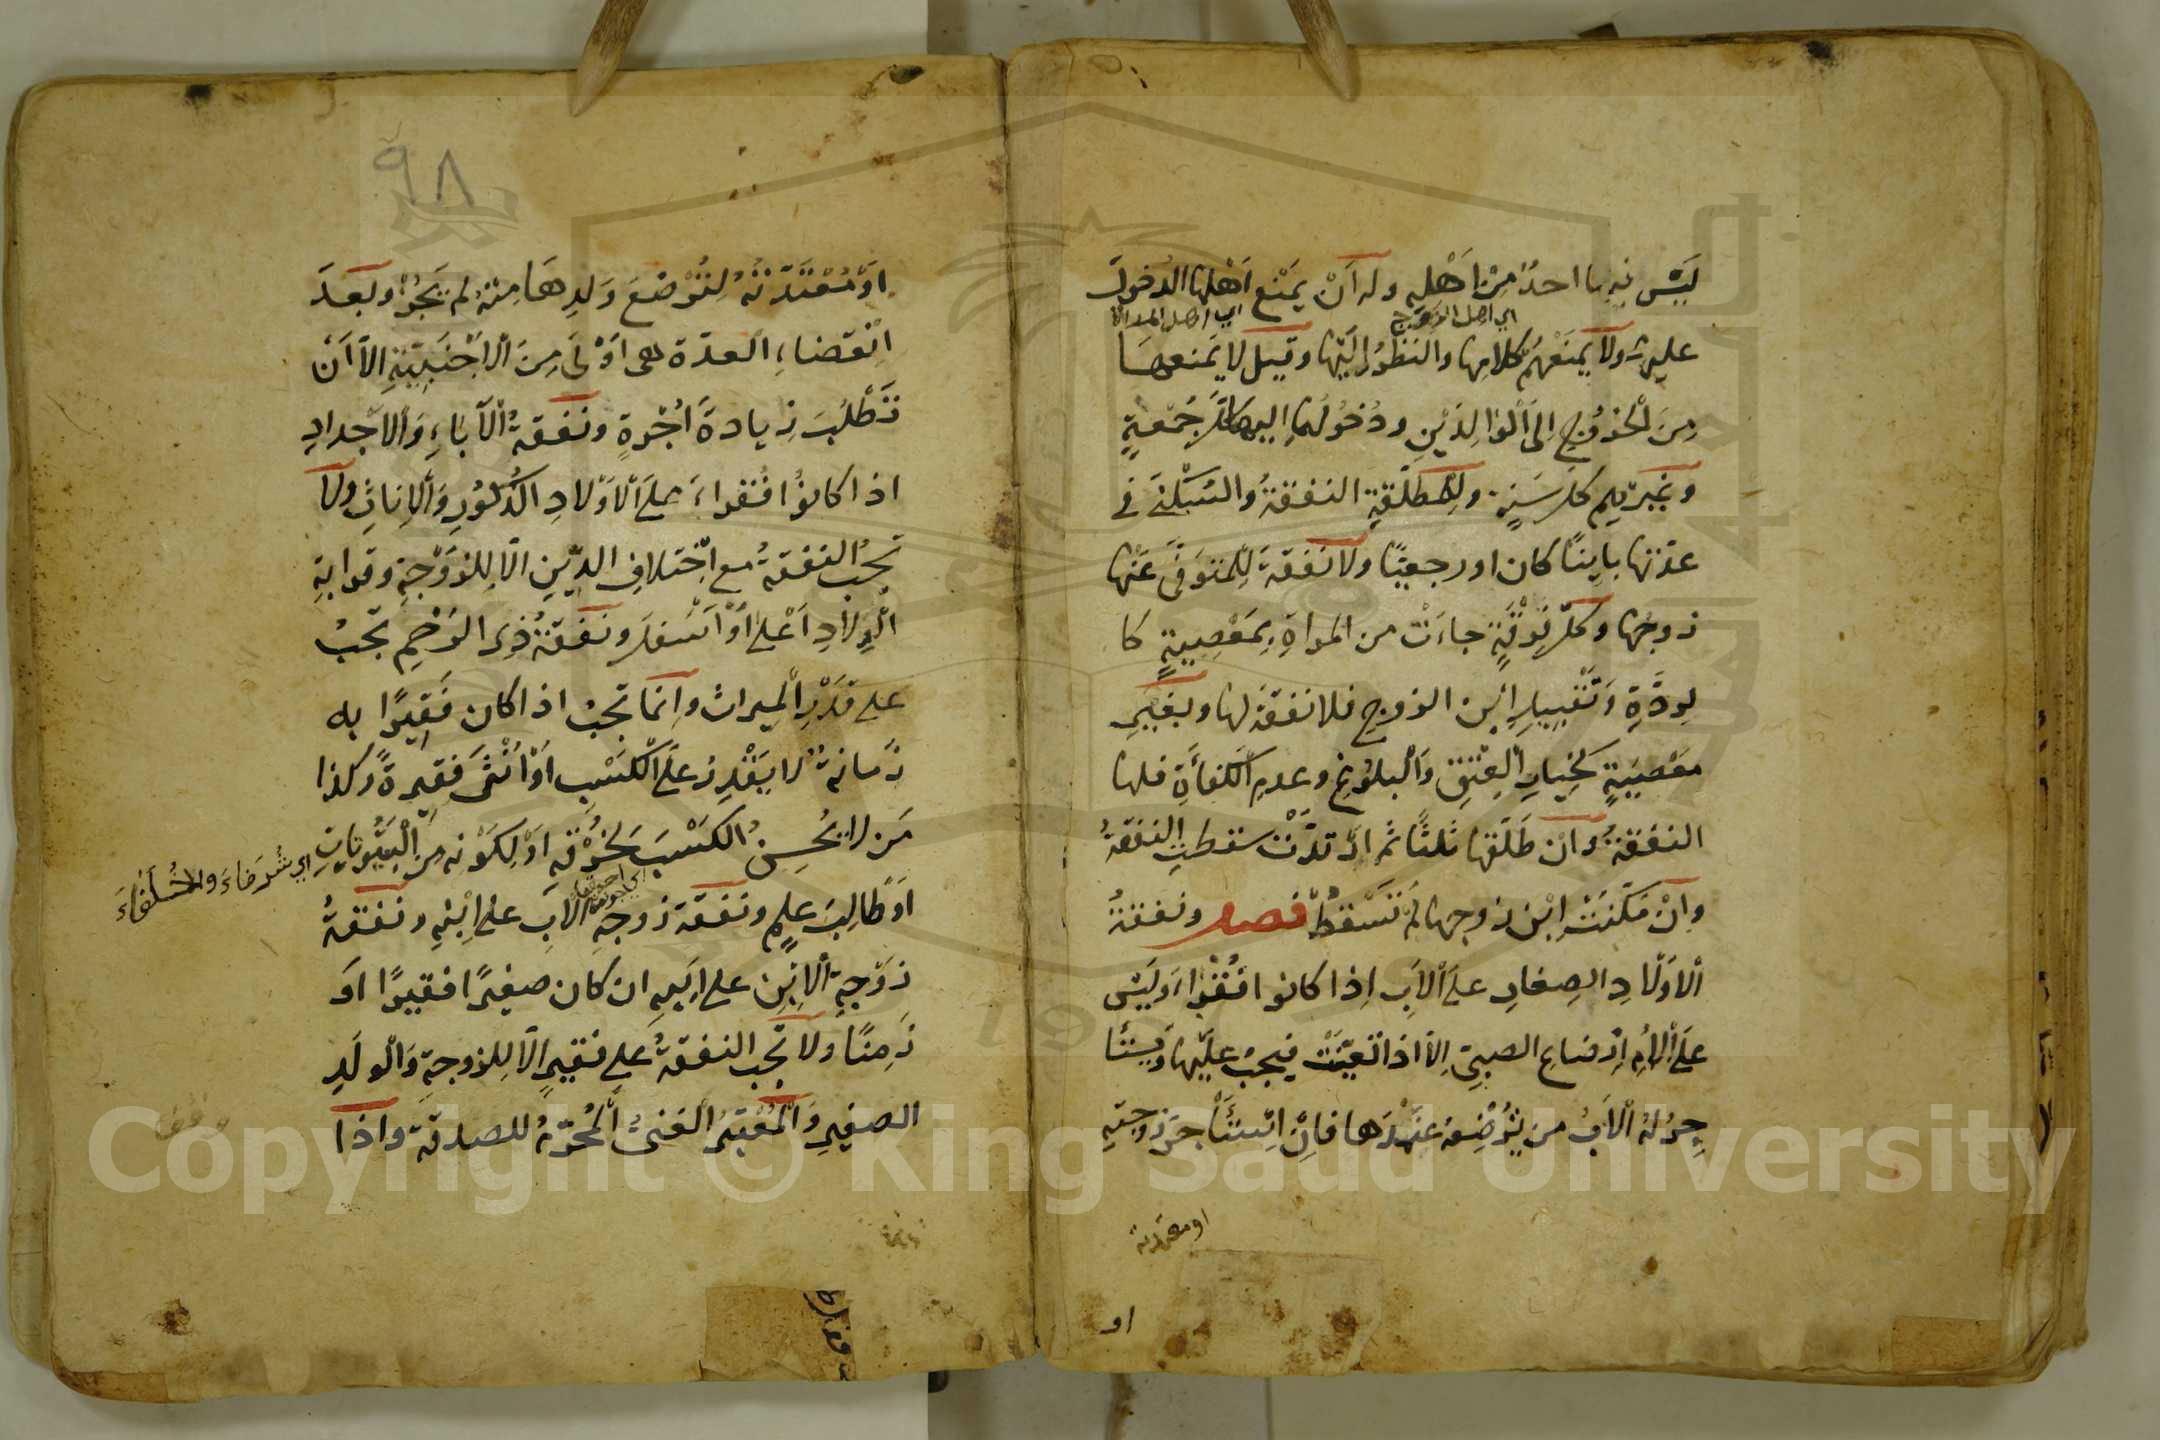 لَيْسَ فيها احدٌ مِنْ اَهْلِهِ وله اَنْ يَمْنَع اَهْلها الدُخولَ
اي اهل الزوج
اي اهل المراة
عليها ولا يَمنَعْهُم كلامها والنظرَ اِلَيْها وقيل لا يَمنعها
مِنَ الخُروُج اِلىَ اْلوالِدَيْنِ ودُخُولُهما اليها كلّ جُمْعةٍ
وغَيرهم كل سَنةٍ ولِلمطلّقةِ النفقةُ والسُكْنىَ في
عدّتها باينًا كان او رجعيًا ولا نَفَقةَ لِلمتوَفَّى عَنْها
زوجُها وكلّ فُرْقَةٍ جاءَتْ من المراةِ بِمَعْصِيةٍ كا
لرِدَّةِ وَتَقْبيلِ اِبن الزوج فلا نفقةَ لها وبغَيرِ
مَعْصِيَةٍ كَخِيارِ اْلعِتْقِ وَاْلبلُوغِ وعدمِ الكفأةِ فلها
النفقةُ وان طَلّقها ثلثًا ثم ارْتدَّتْ سقطت النفقةُ
وانْ مَكّنَتْ اِبْن زوجها لمْ تَسْقُطْ فصل ونفقةُ
اْلاوَلادِ الصِغارِ علىَ الاَبِ اِذا كانوا فُقراءَ وَلَيْسَ
علىَ الاُمِ اِرْضاع الصبيّ اِلاّ اذا تعيّنَتْ فيجبُ علَيْها وَيَستْأ
جِرُ لهُ اْلاَبُ من يُرْضِعهُ عِنْدَها فاِنْ اِسْتأجَرَ زوجتهِ
او معتدته
او
٩٨
اوْ مُعْتَدّتَهُ لِتُرْضعَ وَلدِها مِنْهُ لم يَجُزْ وبَعدَ
انْقضاءِ العدّة هى اوْلىَ مِنَ اْلاَجْنَبِيّةِ الاّ اَنْ
تَطْلُبَ زيادةَ اُجْرةٍ ونَفَقةُ اْلآباءِ وَالاَجْدادِ
اذا كانوُا فُقراءَ علىَ الاَوْلادِ الذُكُورِ وَاْلاِناثِ ولا
تَجبُ النفقةُ مع اِخْتلافِ الدّيْنِ الّا لِلزوَْجةِ وقرابةِ
الْوِلادِ اَعْلىَ اَوْ اَسْفَلَ ونَفَقةُ ذِى الرَحْمِ تَجبُ
على قَدْرِ اْلميراث وانما تَجبُ اذا كان فَقِيرًا به
زَمانةٌ لا يَقْدِرُ علىَ الكَسْبِ اَوْ اُنْثىَ فقيرةً وكذا
مَن لا يُحسِنُ الكَسْبَ لِخُرْقهِ اوْ لِكَوْنه مِنَ اْلبُيُوتاتِ
اي شُرَفاءَ والخُلَفاءَ
اَوْ طالِبَ علمٍ ونفقة زوجةِ الاَبِ على اِبْنهِ ونفقةُ
زَوْجةِ اْلاِبْنِ على اَبيهِ ان كان صغيرًا فقيرًا اوْ
زَمِنًا ولا تَجب النفقةُ على فقيرٍ الاّ لِلزوجةِ وَالْولَدِ
الصغيرِ وَاْلمُعْتبَرُ الغنىُّ اْلمُحَرّمةُ للصدقة واذا